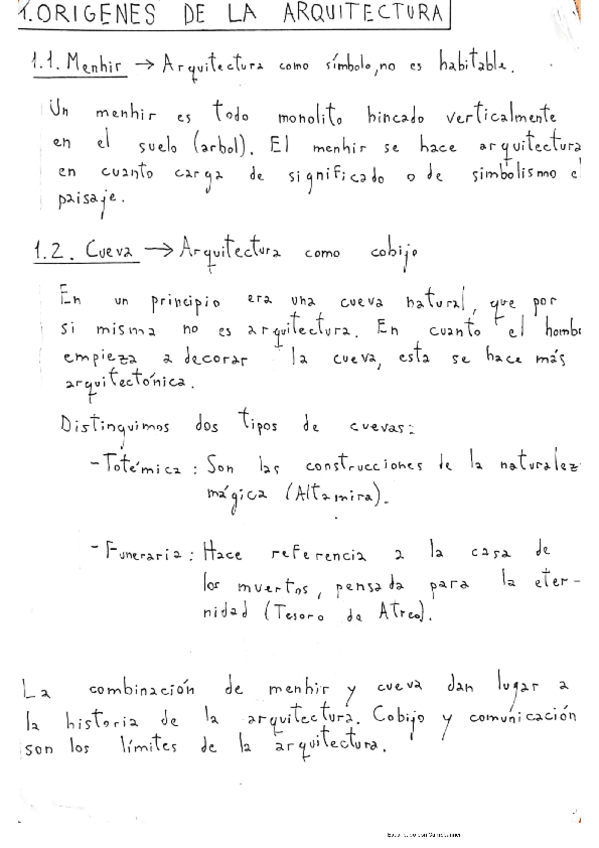 1.ORIGENES DE LA ARQUITECTURA
1.1. Menhir → Arquitectura como símbolo, no es habitable.
Un menhir es todo monolito hincado verticalmente
en el suelo (arbol). El menhir se hace arquitectura
en cuanto carga de significado o de simbolismo el
paisaje.
1.2. Cueva → Arquitectura como cobijo
En un principio era una cueva natural, que por
si misma no es arquitectura. En cuanto el homb
empieza a decorar la cueva, esta se hace más
arquitectónica.
Distinguimos dos tipos de cuevas:
-Totémica: Son las construcciones de la naturalez
mágica (Altamira).
-Funeraria: Hace referencia a la casa de
los muertos, pensada para la eter-
nidad (Tesoro de Atreo).
La combinación de menhir y cueva dan lugar a
la historia de la arquitectura. Cobijo y comunicación
son los límites de la arquitectura.